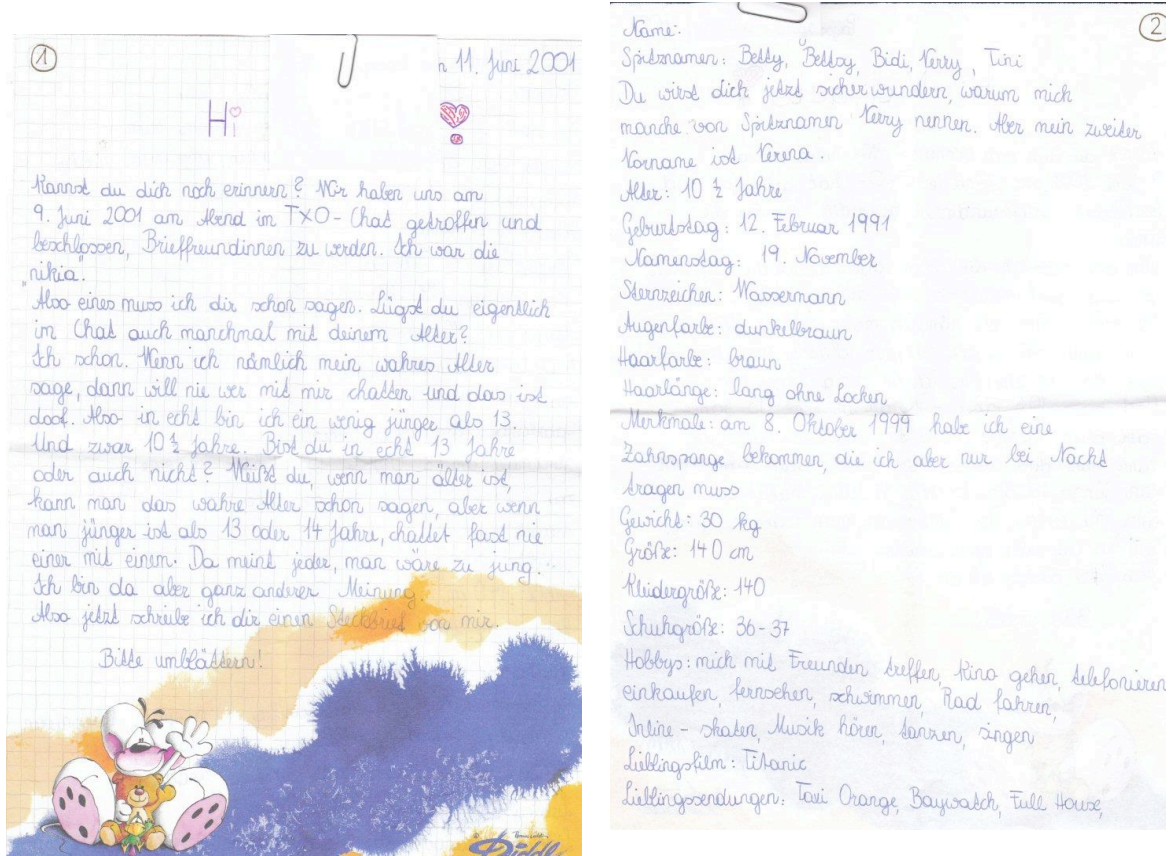 1
n 11. Juni 2001
Hi
!
Kannst du dich noch erinnern? Wir haben uns am
9. Juni 2001 am Abend im TXO-Chat getroffen und
beschlossen, Brieffreundinnen zu werden. Ich war die
„nikia".
Also eines muss ich dir schon sagen. Lügst du eigentlich
im Chat auch manchmal mit deinem Alter?
Ich schon. Wenn ich nämlich mein wahres Alter
sage, dann will nie wer mit mir chatten und das ist
doof. Also in echt bin ich ein wenig jünger als 13.
Und zwar 10 ½ Jahre. Bist du in echt 13 Jahre
oder auch nicht? Weißt du, wenn man älter ist,
kann man das wahre Alter schon sagen, aber wenn
man jünger ist als 13 oder 14 Jahre, chattet fast nie
einer mit einem. Da meint jeder, man wäre zu jung.
Ich bin da aber ganz anderer Meinung.
Also jetzt schreibe ich dir einen Steckbrief von mir.
Bitte umblättern!
Diddl
2
Name:
Spitznamen: Betty, Betsy, Bidi, Verry, Tini
Du wirst dich jetzt sicher wundern, warum mich
manche von Spitznamen Verry nennen. Aber mein zweiter
Vorname ist Verena.
Alter: 10 ½ Jahre
Geburtstag: 12. Februar 1991
Namenstag: 19. November
Sternzeichen: Wassermann
Augenfarbe: dunkelbraun
Haarfarbe: braun
Haarlänge: lang ohne Locken
Merkmale: am 8. Oktober 1999 habe ich eine
Zahnspange bekommen, die ich aber nur bei Nacht
tragen muss
Gewicht: 30 kg
Größe: 140 cm
Kleidergröße: 140
Schuhgröße: 36-37
Hobbys: mich mit Freunden treffen, Kino gehen, telefonieren
einkaufen, fernsehen, schwimmen, Rad fahren,
Inline-skaten, Musik hören, tanzen, singen
Lieblingsfilm: Titanic
Lieblingssendungen: Taxi Orange, Baywatch, Full House,